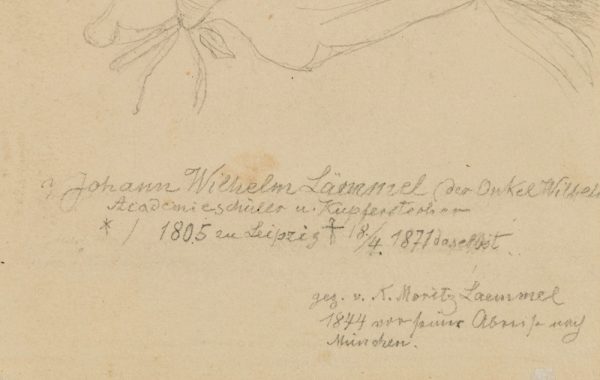 Johann Wilhelm Lämmel (der Onkel Wilhelm
Academieschüler u. Kupferstecher
* / 1805 zu Leipzig † 18/4. 1871 daselbst.
gez. v. K. Moritz Laemmel
1844 vor seiner Abreise nach
München.